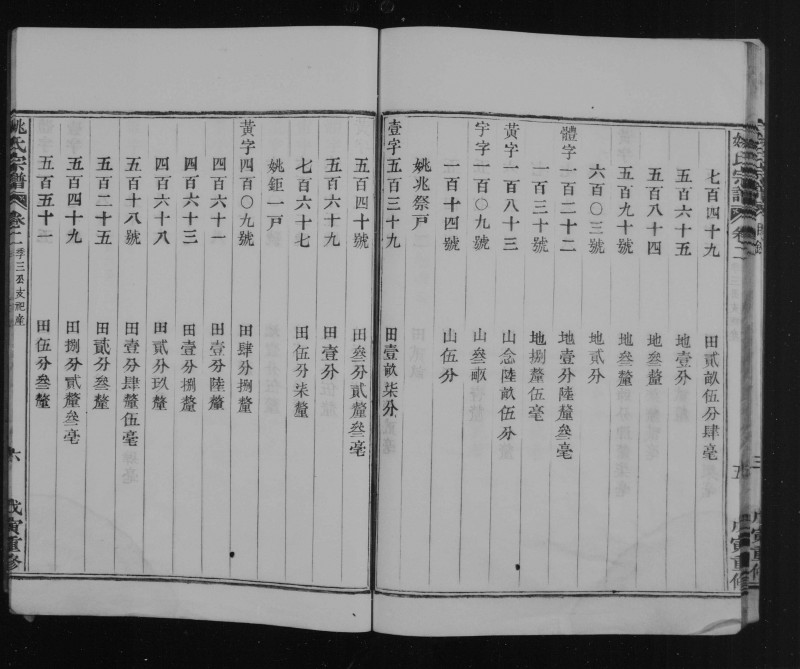 七百四十九 田貳畝伍分肆毫
五百六十五 地壹分
五百八十四 地叁釐
五百九十號 地叁釐
六百〇三號 地貳分
體字一百二十二 地壹分陸釐叁毫
一百三十號 地捌釐伍毫
黃字一百八十三 山念陸畝伍分
宇字一百〇九號 山叁畝
一百十四號 山伍分
姚兆祭戸
壹字五百三十九 田壹畝柒分
五百四十號 田叁分貳釐叁毫
五百六十九 田壹分
七百六十七 田伍分柒釐
姚鉅一戸
黃字四百〇九號 田肆分捌釐
四百六十一 田壹分陸釐
四百六十三 田壹分捌釐
四百六十八 田貳分玖釐
五百十八號 田壹分肆釐伍毫
五百二十五 田貳分叁釐
五百四十九 田捌分貳釐叁毫
五百五十 田伍分叁釐
姚氏宗譜 卷二 季三房支祀產 六 戊寅重修